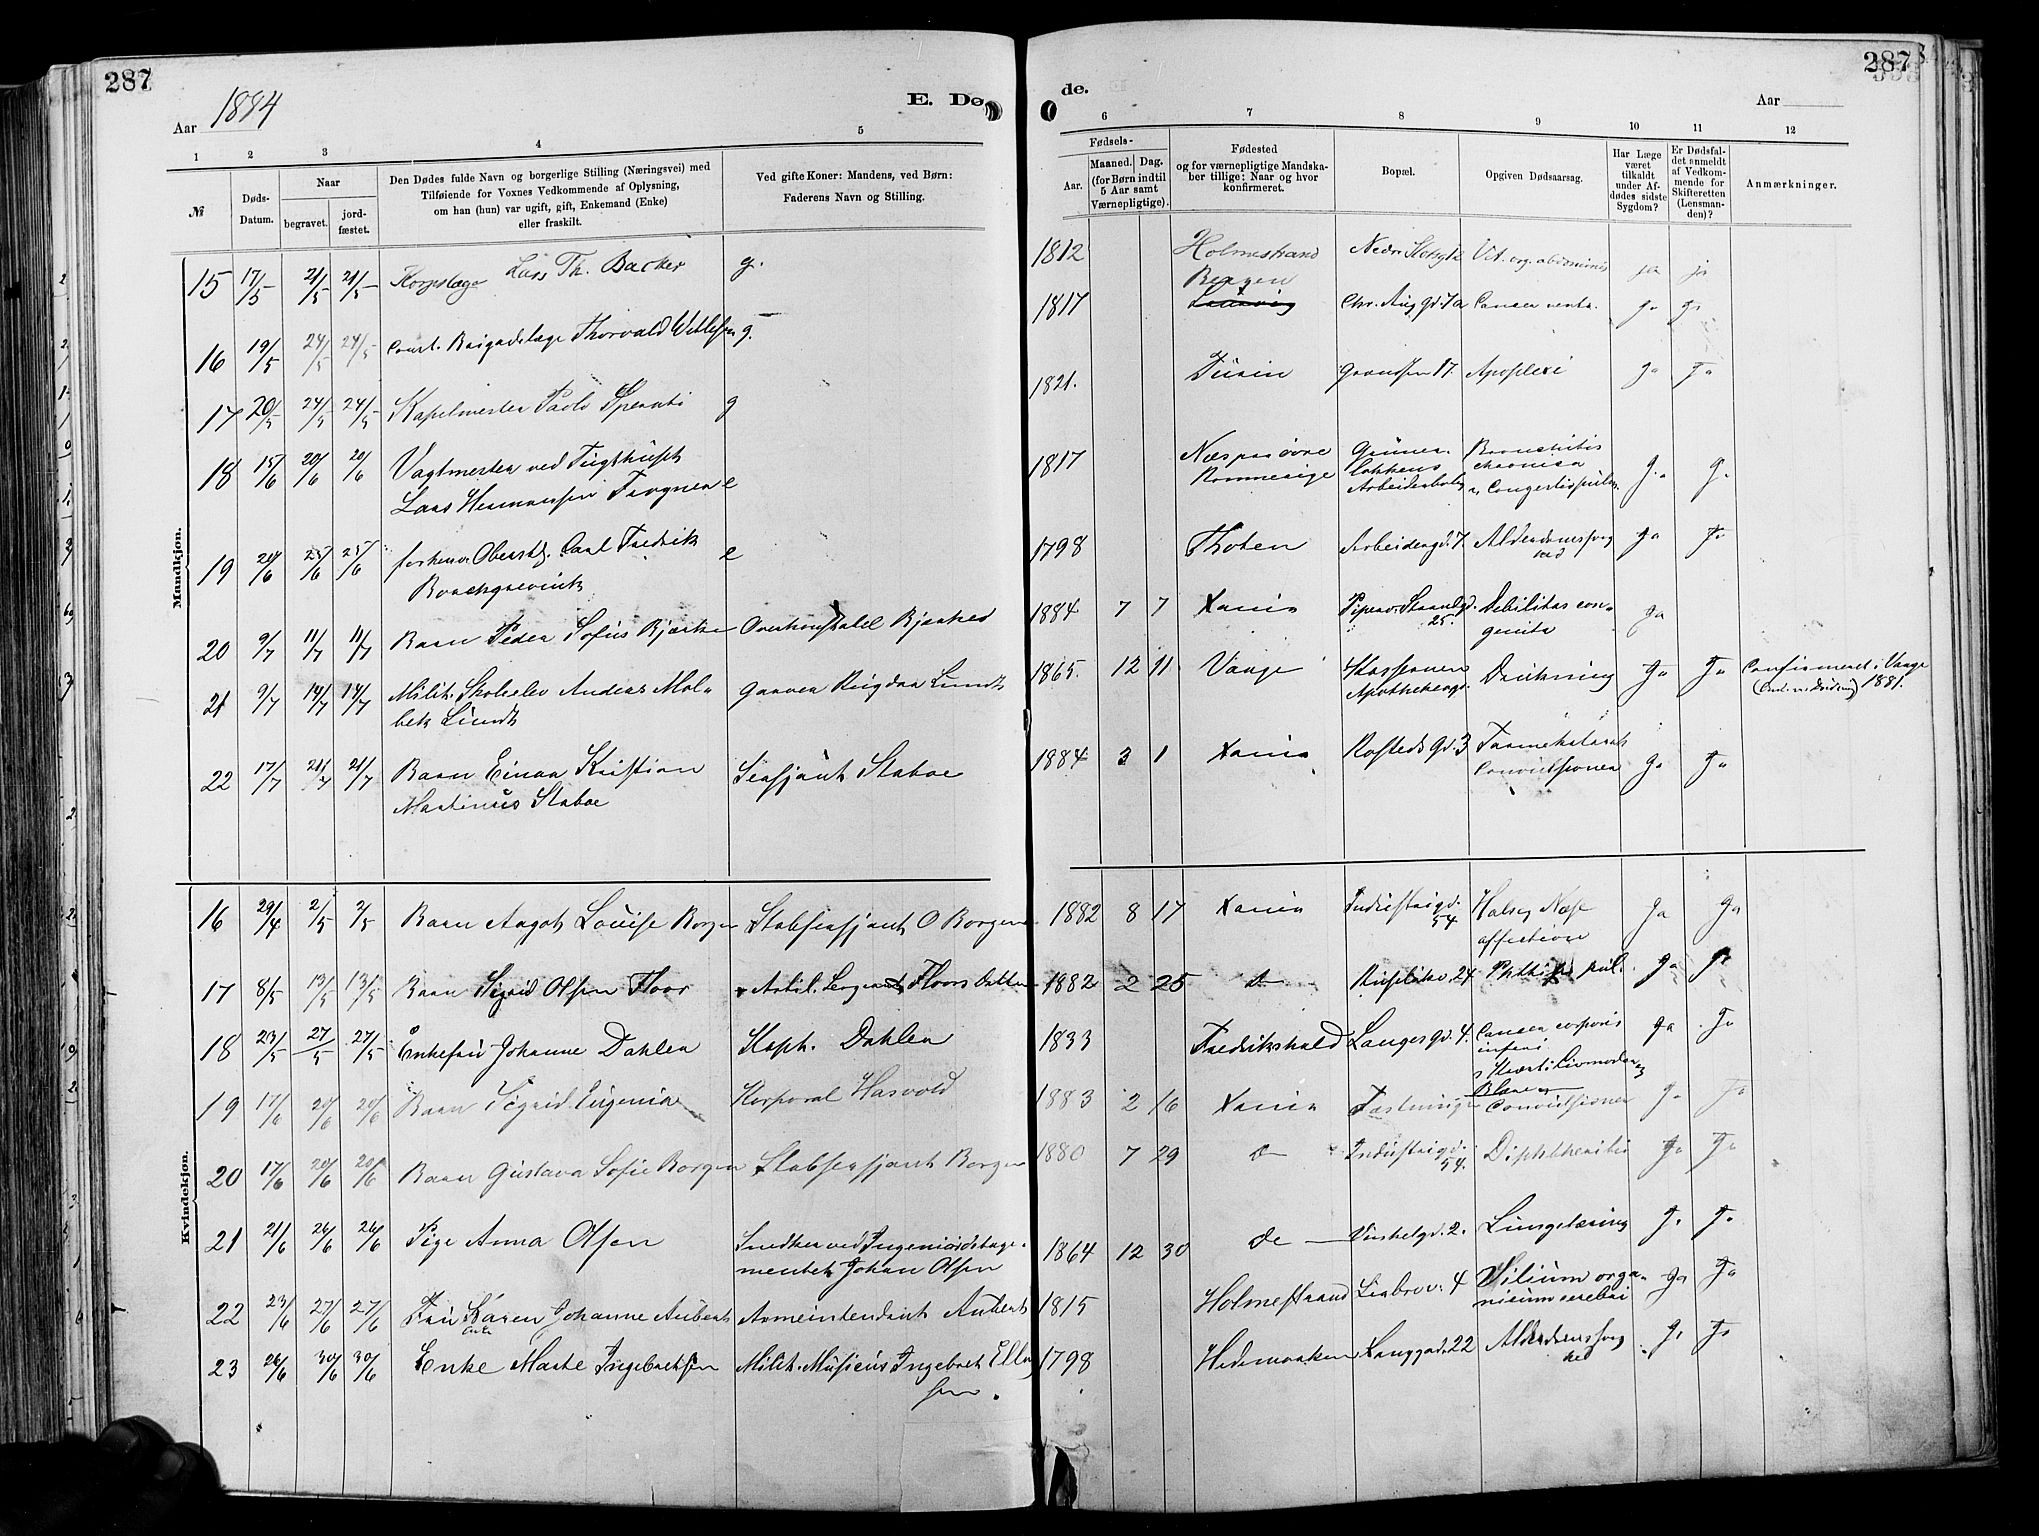 287
287
1884
Aar
E. Dø
de.
Aar
1 2 3 4 5 6 7 8 9 10 11 12
№
Døds-
Datum.
Naar
begravet.
jord-
fæstet.
Den Dødes fulde Navn og borgerlige Stilling (Næringsvei) med
Tilføiende for Voxnes Vedkommende af Oplysning,
om han (hun) var ugift, gift, Enkemand (Enke)
eller fraskilt.
Ved gifte Koner: Mandens, ved Børn:
Faderens Navn og Stilling.
Fødsels-
Aar.
Maaned. Dag.
(for Børn indtil
5 Aar samt
Værnepligtige).
Fødested
og for værnepligtige Mandska-
ber tillige: Naar og hvor
konfirmeret.
Bopæl.
Opgiven Dødsaarsag.
Har Læge
været
tilkaldt
under Af-
dødes sidste
Sygdom?
Er Dødsfal-
det anmeldt
af Vedkom-
mende for
Skifteretten
(Lensman-
den)?
Anmærkninger.
Mandkjøn.
15 17/5 21/5 21/5 Korpslæge Lars Th. Backer g. 1812 Holmestrand Nedre Slotsgd Vit. org. abdominis ja ja
16 19/5 24/5 24/5 Const. Brigadelæge Thorvald g. 1817 Bergen Chr. Aug. gd. 7a Cancer ventr. ja ja
17 20/5 24/5 24/5 Kapelmester Paolo Sperati g 1821. Turin Grændsen 17. Apoplexi Ja Ja
18 15/6 20/6 20/6 Vagtmester ved Tugthuset
Lars Hermansen Frogner e 1817 Næs paa øvre
Romerige Grüner-
løkkens
Arbeiderbolig Bronchitis
chronica
Congestio pulm. Ja Ja
19 20/6 25/6 25/6 forhenv. Oberstlj. Carl Fredrik
Borchgrevink e 1798 Thoten Arbeidergd. 7. Alderdomssvag
hed Ja Ja
20 9/7 11/7 11/7 Barn Peder Sofus Bjerke Overkonstabel Bjerkes 1884 7 7 Xania Piperv. Strandgd.
25. Debilitas con-
genita Ja
21 9/7 14/7 14/7 Milit. Skoleelev Anders Mol-
bek Lundh Graver Rigdar Lundh 1865. 12 11 Vange Kassernen
Apothekergd. Drukning Ja Ja Confirmeret i Vange
1881.
22 17/7 21/7 21/7 Barn Einar Kristian
Martinus Staboe Sersjant Staboe 1884 3 1 Xania Rosteds Gd. 3 Tarmekatarrh
Convulsioner Ja Ja
Kvindekjøn.
16 29/4 2/5 2/5 Barn Aagot Louise Borgen Stabsersjant O Borgen 1882 8 17 Xania Industrigd.
54 Hals og Næse
affectione Ja Ja
17 8/5 13/5 13/5 Barn Sigrid Olsen Floor Artil. Sergeant Floors Datter 1882 2 25 do Ruseløkv. 24 Phthisis pul. Ja Ja
18 23/5 27/5 27/5 Enkefru Johanne Dahlen Kapt. Dahlen 1833 Fredrikshald Langes Gd. 4. Cancer corporis
inferi
Kræft i Livmoder og
Blære Ja Ja
19 17/6 20/6 20/6 Barn Sigrid Eugenia Korporal Hasvold 1883 2 16 Xania Fæstningen Convulsioner Ja Ja
20 17/6 20/6 20/6 Barn Gustava Sofie Borgen Stabsersjant Borgen 1880 7 29 do Industrigd.
54. Diphtheritis Ja Ja
21 21/6 26/6 26/6 Pige Anna Olsen Snedker ved Ingeniørdetage-
mentet Johan Olsen 1864 12 30 do Vinkelgd. 2. Lungetæring Ja Ja
22 23/6 27/6 27/6 Fru Karen Johanne Aubert
Enke Armeintendant Aubert 1815 Holmestrand Liabrov. 4 Vitium orga-
nicum cerebri Ja Ja
23 26/6 30/6 30/6 Enke Marte Ingebretsen Milit. Musicus Ingebret Elling
sen. 1798 Hedemarken Langgad. 22 Alderdomssvag
hed Ja Ja